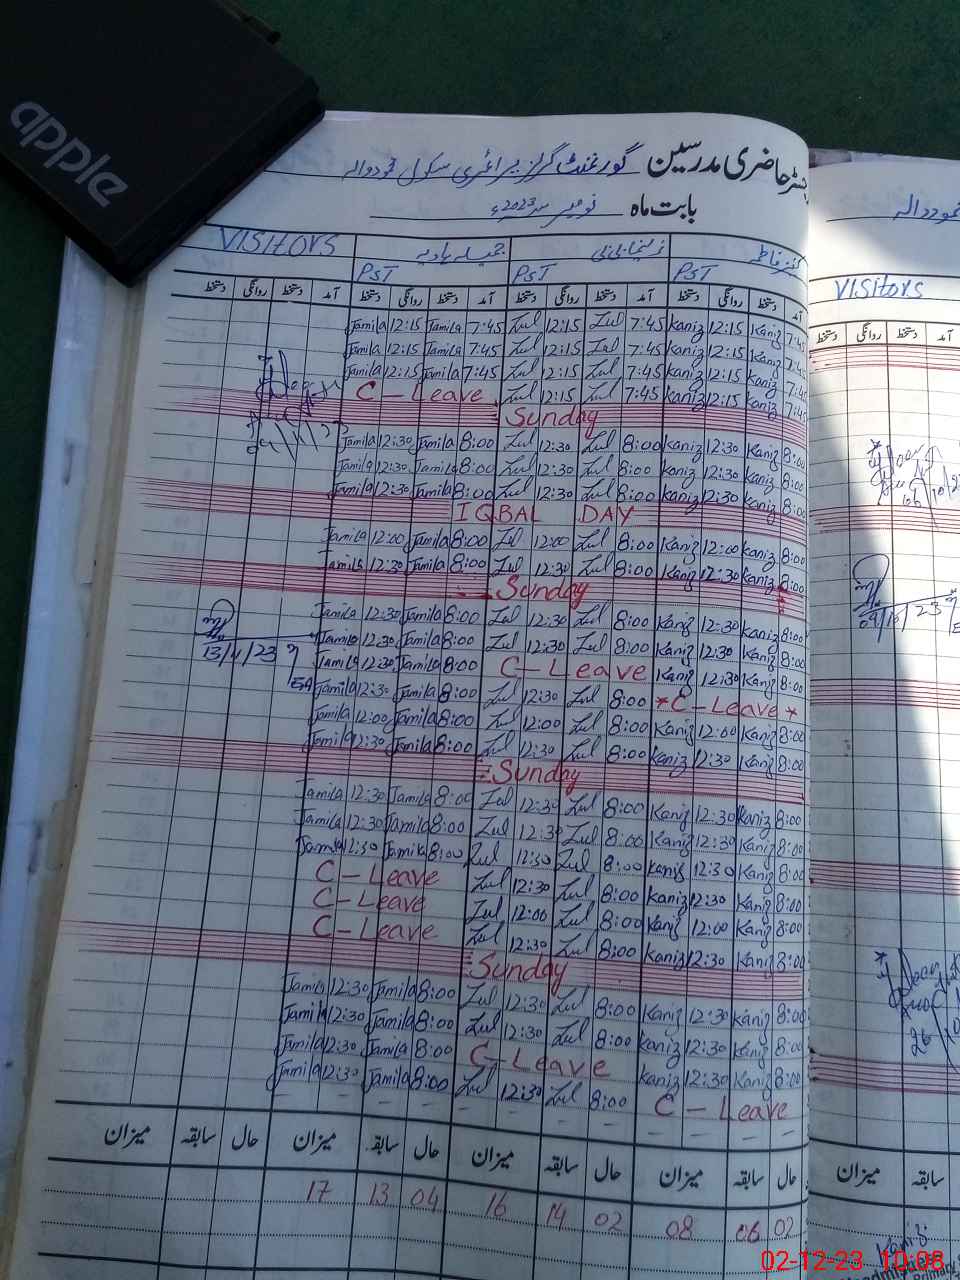 apple
رجسٹر حاضری مدرسین گورنمنٹ گرلز پرائمری سکول
بابت ماہ نومبر 2023ء
VISITORS
PST PST PST
دستخط روانگی دستخط آمد دستخط روانگی دستخط آمد دستخط روانگی دستخط آمد دستخط روانگی دستخط آمد
Jamila 12:15 Jamila 7:45 Zul 12:15 Zul 7:45 Kaniz 12:15 Kaniz 7:45
Jamila 12:15 Jamila 7:45 Zul 12:15 Zul 7:45 Kaniz 12:15 Kaniz 7:45
Jamila 12:15 Jamila 7:45 Zul 12:15 Zul 7:45 Kaniz 12:15 Kaniz 7:45
C - Leave Zul 12:15 Zul 7:45 Kaniz 12:15 Kaniz 7:45
Sunday
Jamila 12:30 Jamila 8:00 Zul 12:30 Zul 8:00 Kaniz 12:30 Kaniz 8:00
Jamila 12:30 Jamila 8:00 Zul 12:30 Zul 8:00 Kaniz 12:30 Kaniz 8:00
Jamila 12:30 Jamila 8:00 Zul 12:30 Zul 8:00 Kaniz 12:30 Kaniz 8:00
IQBAL DAY
Jamila 12:00 Jamila 8:00 Zul 12:00 Zul 8:00 Kaniz 12:00 Kaniz 8:00
Jamila 12:30 Jamila 8:00 Zul 12:30 Zul 8:00 Kaniz 12:30 Kaniz 8:00
Sunday
Jamila 12:30 Jamila 8:00 Zul 12:30 Zul 8:00 Kaniz 12:30 Kaniz 8:00
13/11/23
Jamila 12:30 Jamila 8:00 Zul 12:30 Zul 8:00 Kaniz 12:30 Kaniz 8:00
Jamila 12:30 Jamila 8:00 C - Leave Kaniz 12:30 Kaniz 8:00
Jamila 12:30 Jamila 8:00 Zul 12:30 Zul 8:00 * C - Leave *
Jamila 12:00 Jamila 8:00 Zul 12:00 Zul 8:00 Kaniz 12:00 Kaniz 8:00
Jamila 12:30 Jamila 8:00 Zul 12:30 Zul 8:00 Kaniz 12:30 Kaniz 8:00
Sunday
Jamila 12:30 Jamila 8:00 Zul 12:30 Zul 8:00 Kaniz 12:30 Kaniz 8:00
Jamila 12:30 Jamila 8:00 Zul 12:30 Zul 8:00 Kaniz 12:30 Kaniz 8:00
Jamila 12:30 Jamila 8:00 Zul 12:30 Zul 8:00 Kaniz 12:30 Kaniz 8:00
C - Leave Zul 12:30 Zul 8:00 Kaniz 12:30 Kaniz 8:00
C - Leave Zul 12:00 Zul 8:00 Kaniz 12:00 Kaniz 8:00
C - Leave Zul 12:30 Zul 8:00 Kaniz 12:30 Kaniz 8:00
Sunday
Jamila 12:30 Jamila 8:00 Zul 12:30 Zul 8:00 Kaniz 12:30 Kaniz 8:00
Jamila 12:30 Jamila 8:00 Zul 12:30 Zul 8:00 Kaniz 12:30 Kaniz 8:00
Jamila 12:30 Jamila 8:00 C - Leave Kaniz 12:30 Kaniz 8:00
Jamila 12:30 Jamila 8:00 Zul 12:30 Zul 8:00 C - Leave
میزان سابقہ حال میزان سابقہ حال میزان سابقہ حال میزان سابقہ حال
17 13 04 16 14 02 08 06 02
VISITORS
دستخط روانگی دستخط
میزان سابقہ
Kaniz
02-12-23 10:08